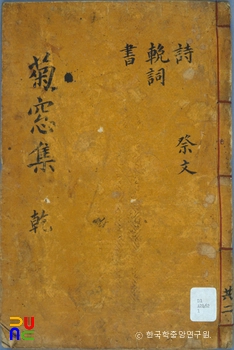 詩
輓詞
書
祭文
菊窓集 乾
共二
ⓒ 한국학중앙연구원